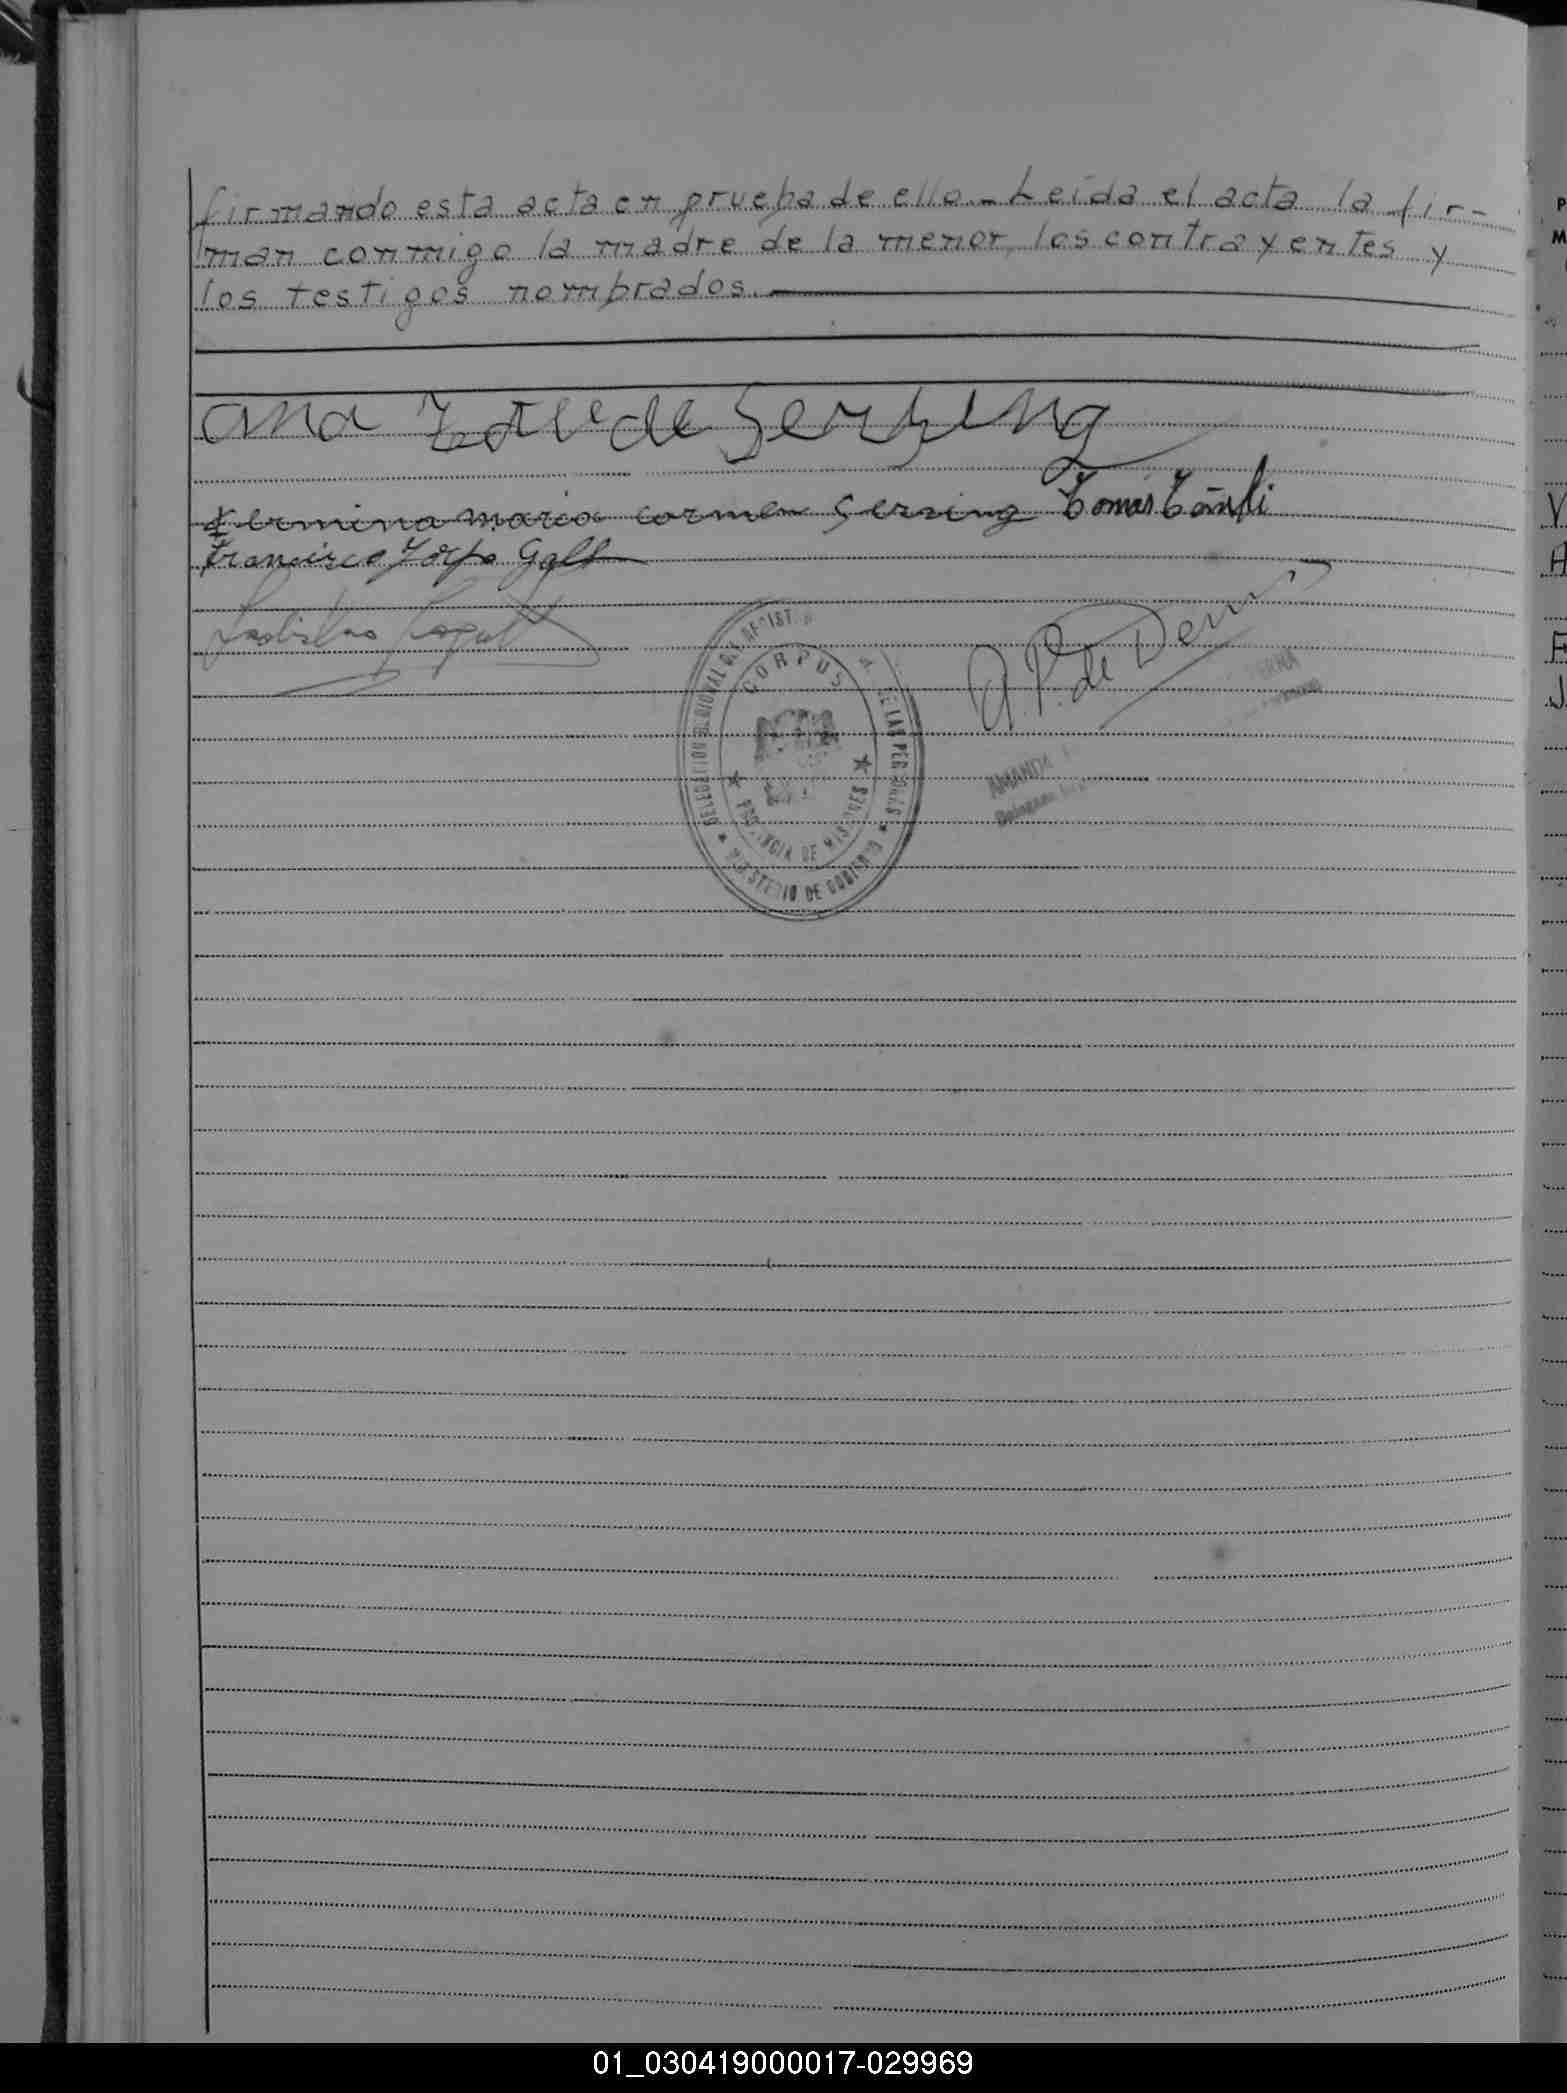 firmando esta acta en prueba de ello.- Leída el acta la fir-
man conmigo la madre de la menor, los contrayentes y
los testigos nombrados.
Ana de Gersing
Termina Maria Carmen Gersing Tomas
Francisco
Ladislao
A. P. de Derna
DELEGACION REGIONAL DEL REGISTRO DE LAS PERSONAS
CORPUS
PROVINCIA DE MISIONES
MINISTERIO DE GOBIERNO
AMANDA
DERNA
P
M
V
H
F
J
01_030419000017-029969